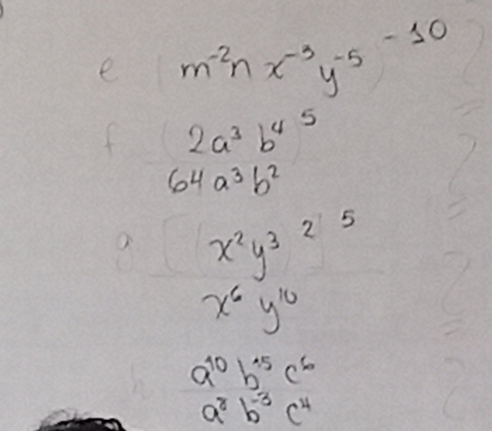 e (m⁻²n x⁻³y⁻⁵)⁻¹⁰
f (2a³ b⁴)⁵
64a³b²
g [(x²y³)²]⁵
x⁶ y¹⁰
h a¹⁰ b¹⁵ c⁶
a² b⁻³ c⁴